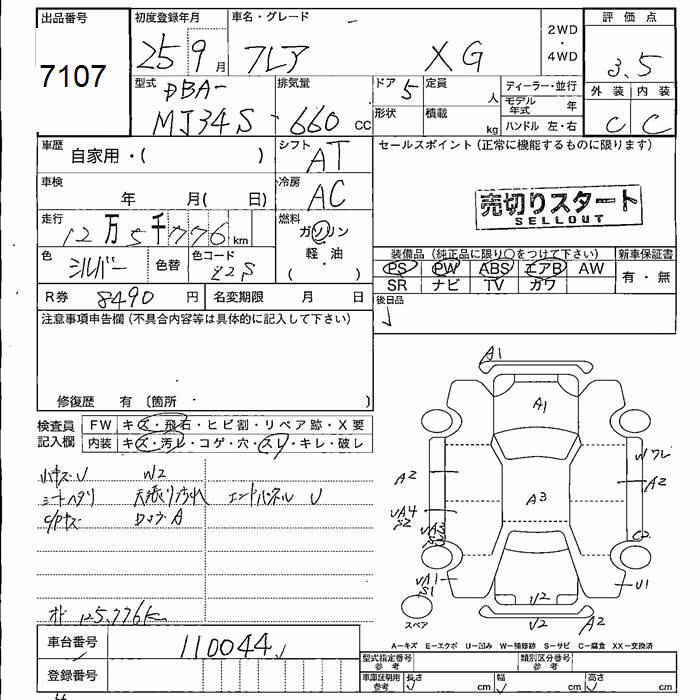 出品番号 初度登録年月 車名・グレード 2WD ・ 4WD 評価点
7107 25 9 月 フレア XG 3.5
外装 内装
C C
型式 DBA- MJ34S 排気量 660 CC ドア 5 定員 人 ディーラー・並行
形状 積載 kg モデル年式 年
ハンドル 左・右
車歴 自家用・( ) シフト AT セールスポイント(正常に機能するものに限ります)
車検 年 月( 日) 冷房 AC
売切りスタート
SELLOUT
走行 12万5千776km 燃料 ガソリン・軽・油( )
色 シルバー 色替 色コード Z2S
装備品(純正品に限り○をつけて下さい) 新車保証書
PS PW ABS エアB AW 有・無
SR ナビ TV ガワ
R券 8490 円 名変期限 月 日 後日品
注意事項申告欄(不具合内容等は具体的に記入して下さい)
修復歴 有(箇所 )
検査員記入欄 FW キズ・飛石・ヒビ割・リペア跡・X要
内装 キズ・汚レ・コゲ・穴・スレ・キレ・破レ
小キズU W2
シートヘタリ 天張り汚れ エンドパネル U
C/Pキズ ロッカA
オド 125,776km
A1
A1
A2
A3
Wフレ
A2
UA4
S2
UA3
C2
UA1
S1
U1
U2
U2
A2
スペア
A-キズ E-エクボ U-凹み W-補修跡 S-サビ C-腐食 XX-交換済
車台番号 110044
登録番号
型式指定番号 参考 類別区分番号 参考
車庫証明用 参考 長さ cm 幅 cm 高さ cm